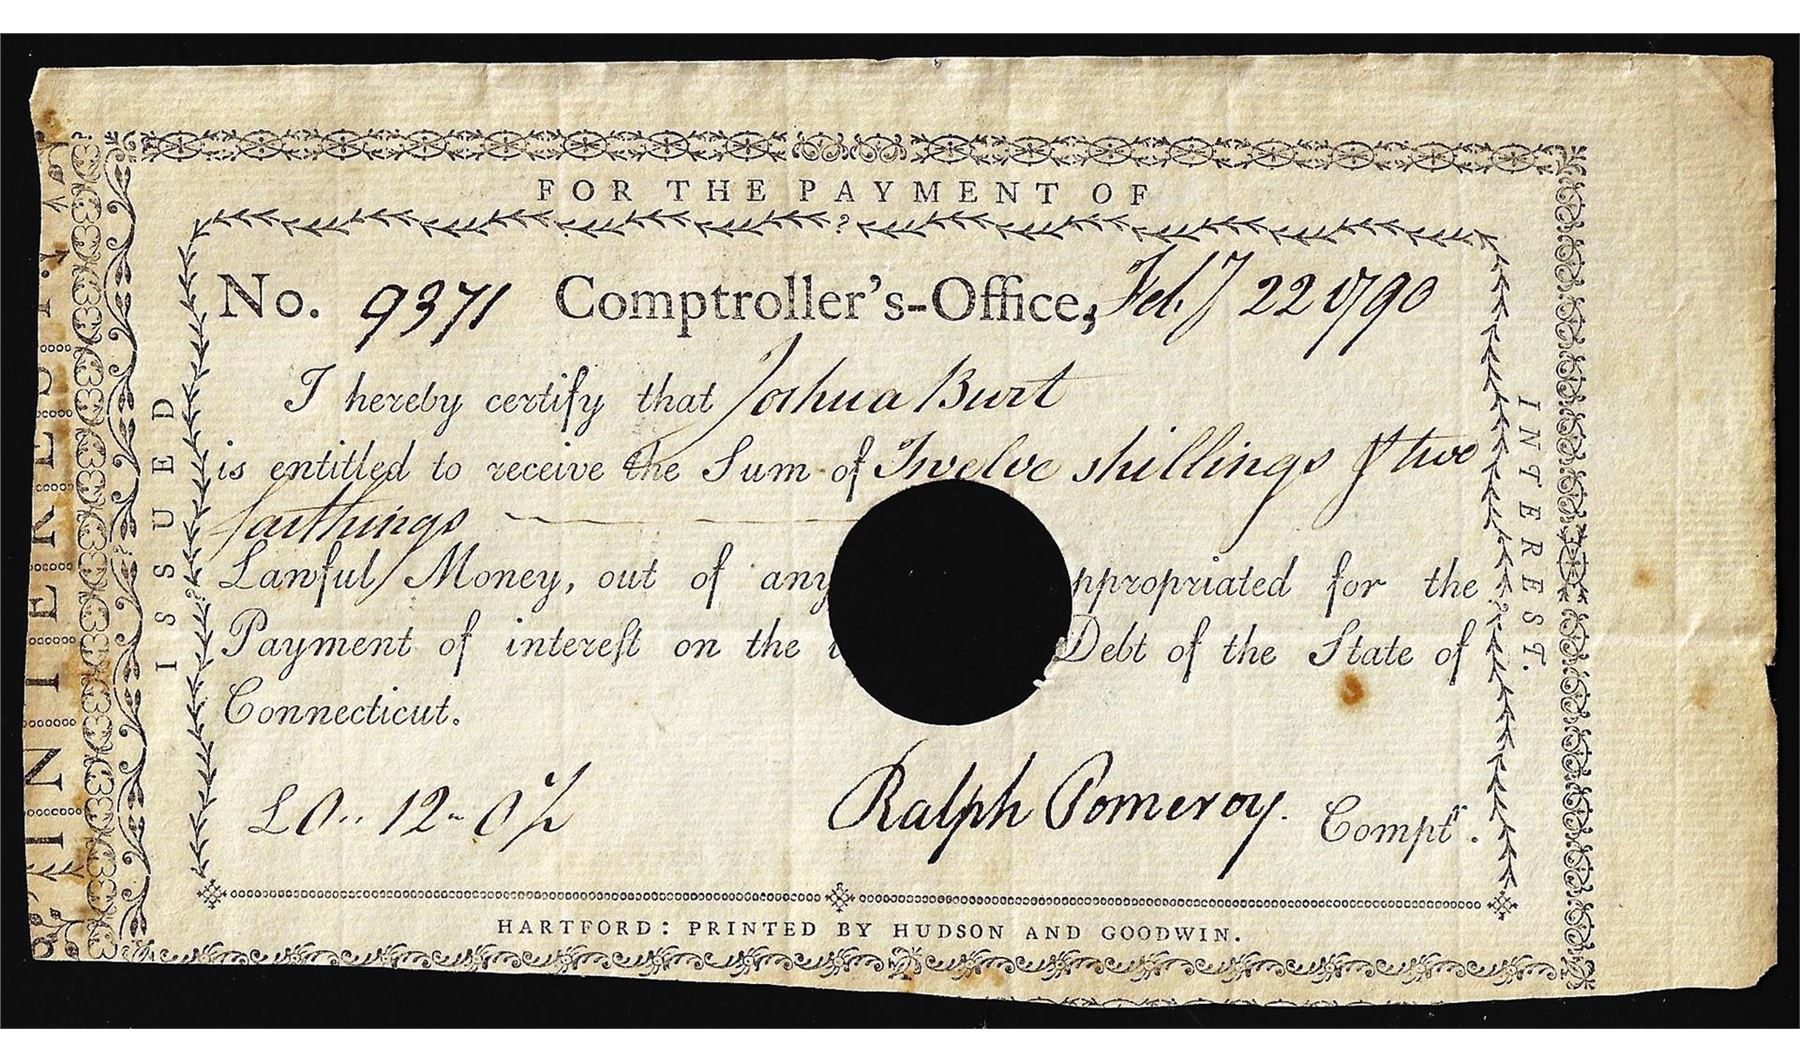 FOR THE PAYMENT OF
No. 9371 Comptroller's-Office, Feby 22 1790
I hereby certify that Joshua Burt
is entitled to receive the Sum of Twelve shillings & two
farthings
Lawful Money, out of any ppropriated for the
Payment of intereſt on the Debt of the State of
Connecticut.
£0.. 12- 0 1/2
Ralph Pomeroy. Comptr.
HARTFORD: PRINTED BY HUDSON AND GOODWIN.
ISSUED
INTEREST.
INTEREST.